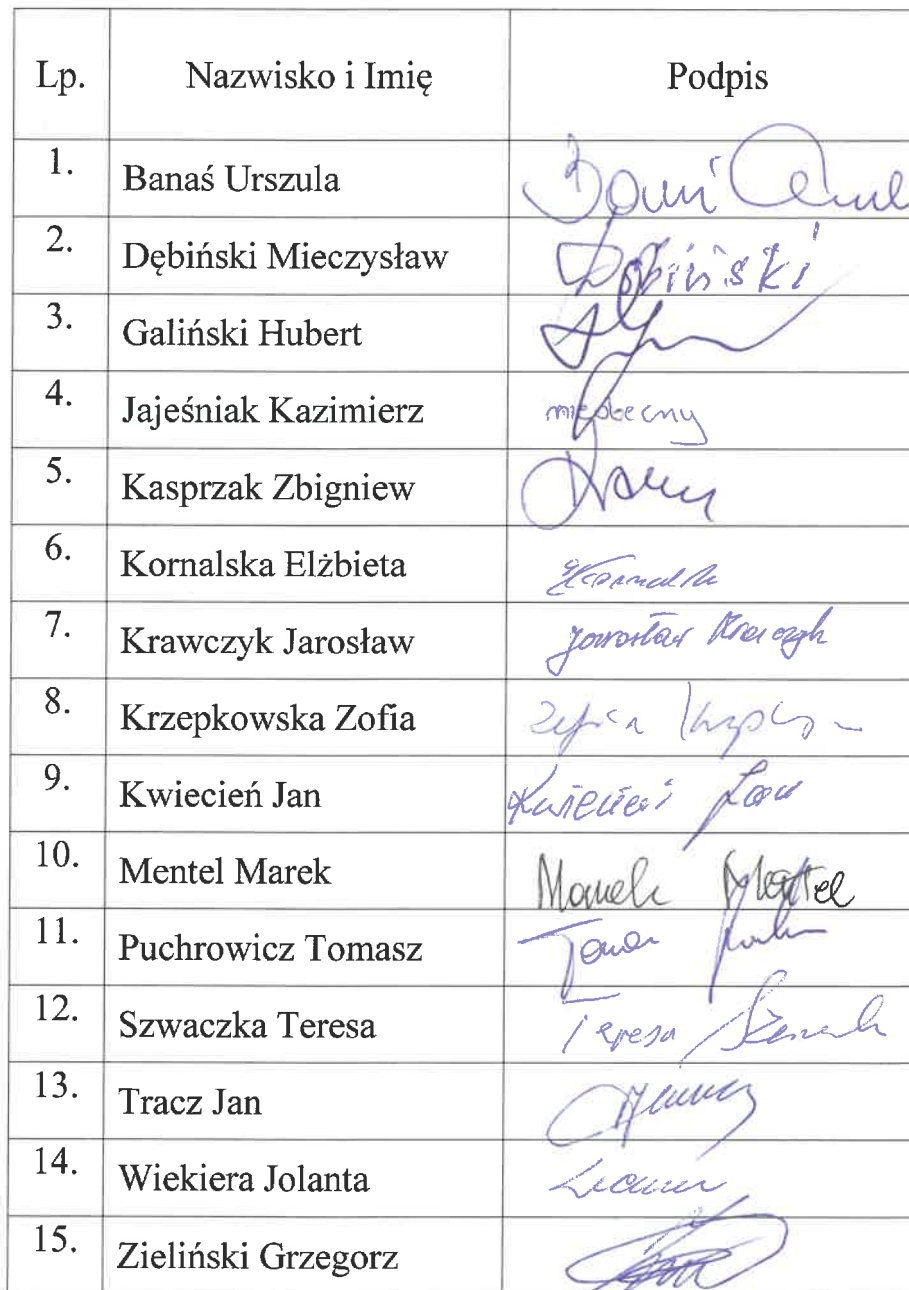 Lp. Nazwisko i Imię Podpis
1. Banaś Urszula
2. Dębiński Mieczysław Dębiński
3. Galiński Hubert
4. Jajeśniak Kazimierz nieobecny
5. Kasprzak Zbigniew
6. Kornalska Elżbieta
7. Krawczyk Jarosław Jarosław Krawczyk
8. Krzepkowska Zofia Zofia
9. Kwiecień Jan Kwiecień Jan
10. Mentel Marek Marek Mentel
11. Puchrowicz Tomasz
12. Szwaczka Teresa Teresa
13. Tracz Jan
14. Wiekiera Jolanta
15. Zieliński Grzegorz